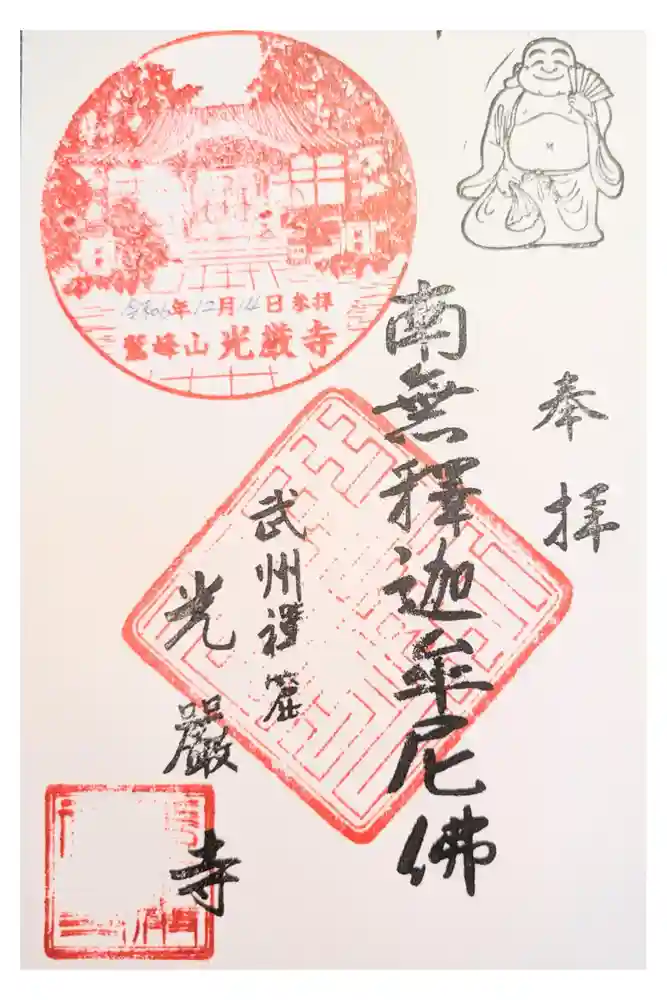 奉拝
南無釋迦牟尼佛
武州禅窟
光嚴寺
令和06年12月14日参拝
鷲峰山 光厳寺